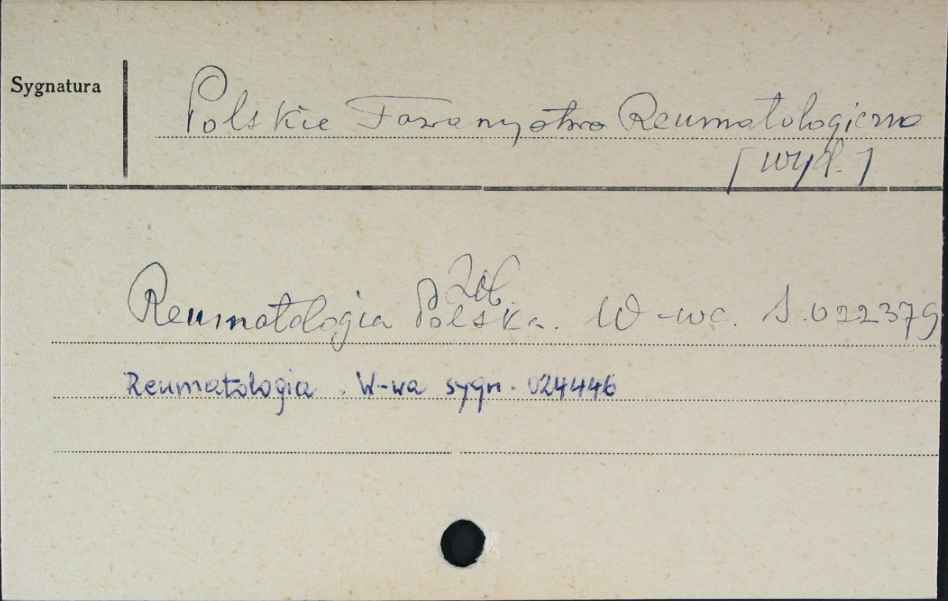 Sygnatura
Polskie Towarzystwo Reumatologiczne
[wyd.]
Zob.
Reumatologia Polska. W-wa. S.022379
Reumatologia. W-wa sygn. 024446